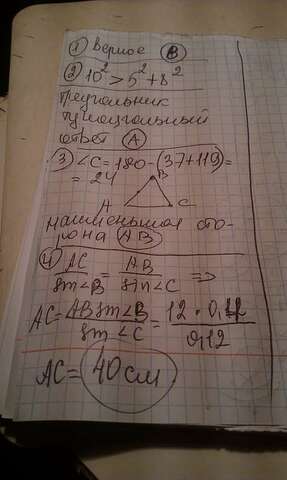 1) Верное В
2) 10² > 5² + 8²
треугольник
тупоугольный
ответ А
3) ∠C = 180 - (37 + 119) =
= 24
B
A C
наименьшая сто-
рона AB
4) AC / sin∠B = AB / sin∠C =>
AC = AB sin∠B / sin∠C = 12 · 0,4 / 0,12
AC = 40 см